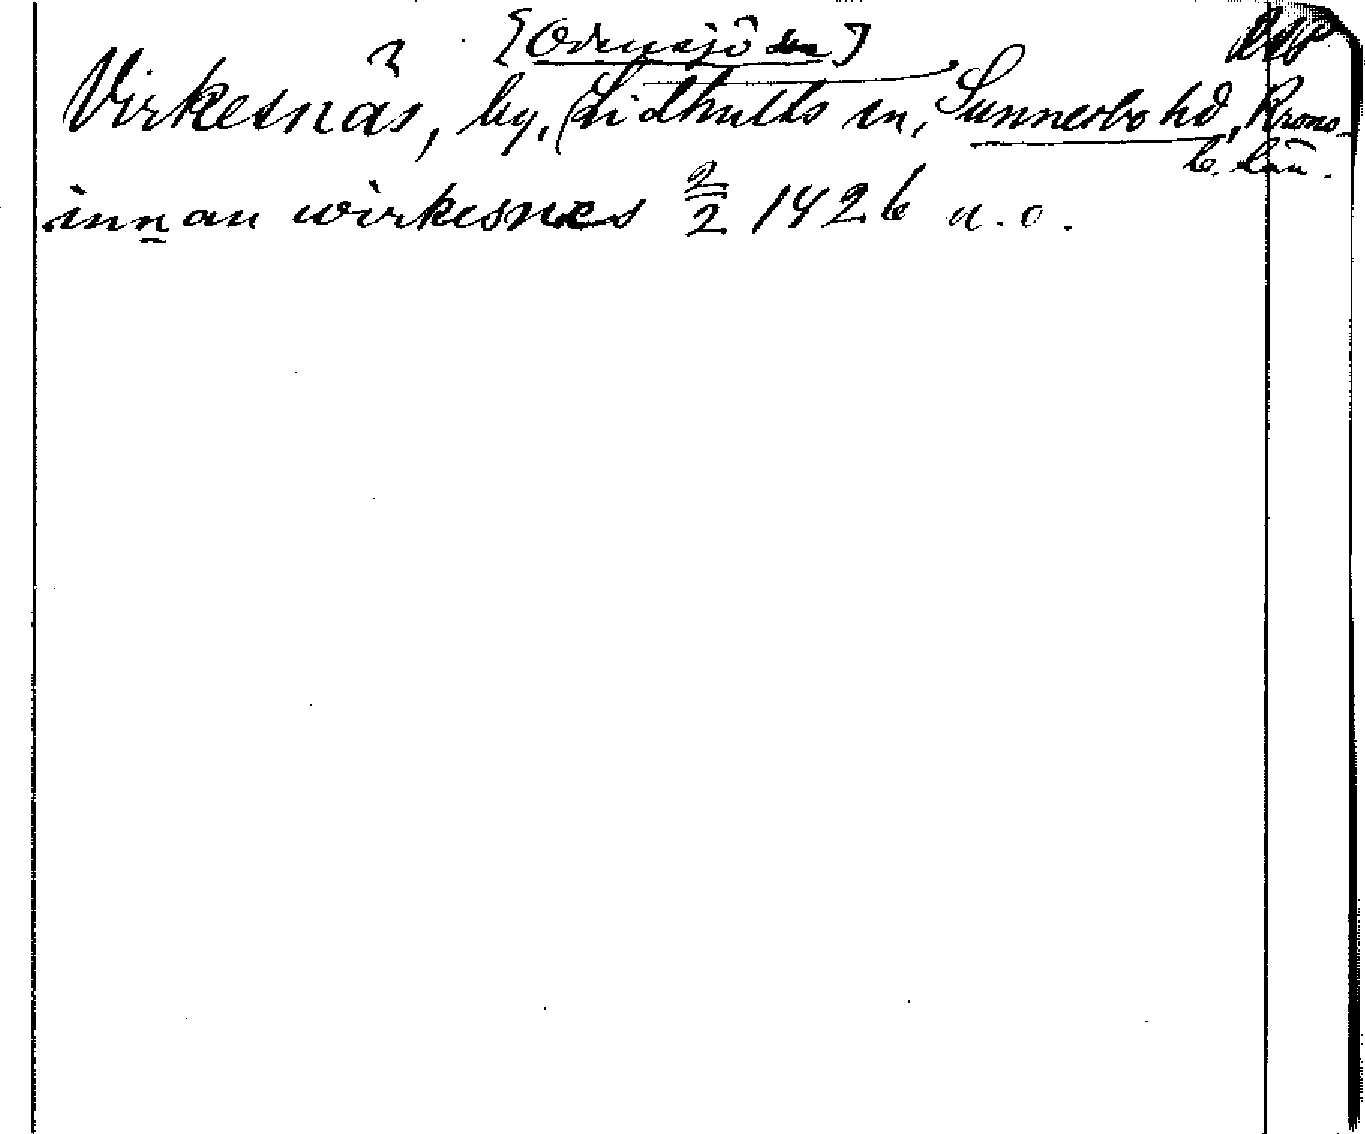 [Odensjö sn]
Virkesnäs, by, (Lidhults sn, Sunnerbo hd, Krono-
b. län.
innan wirkesnes 2/2 1426 u.o.